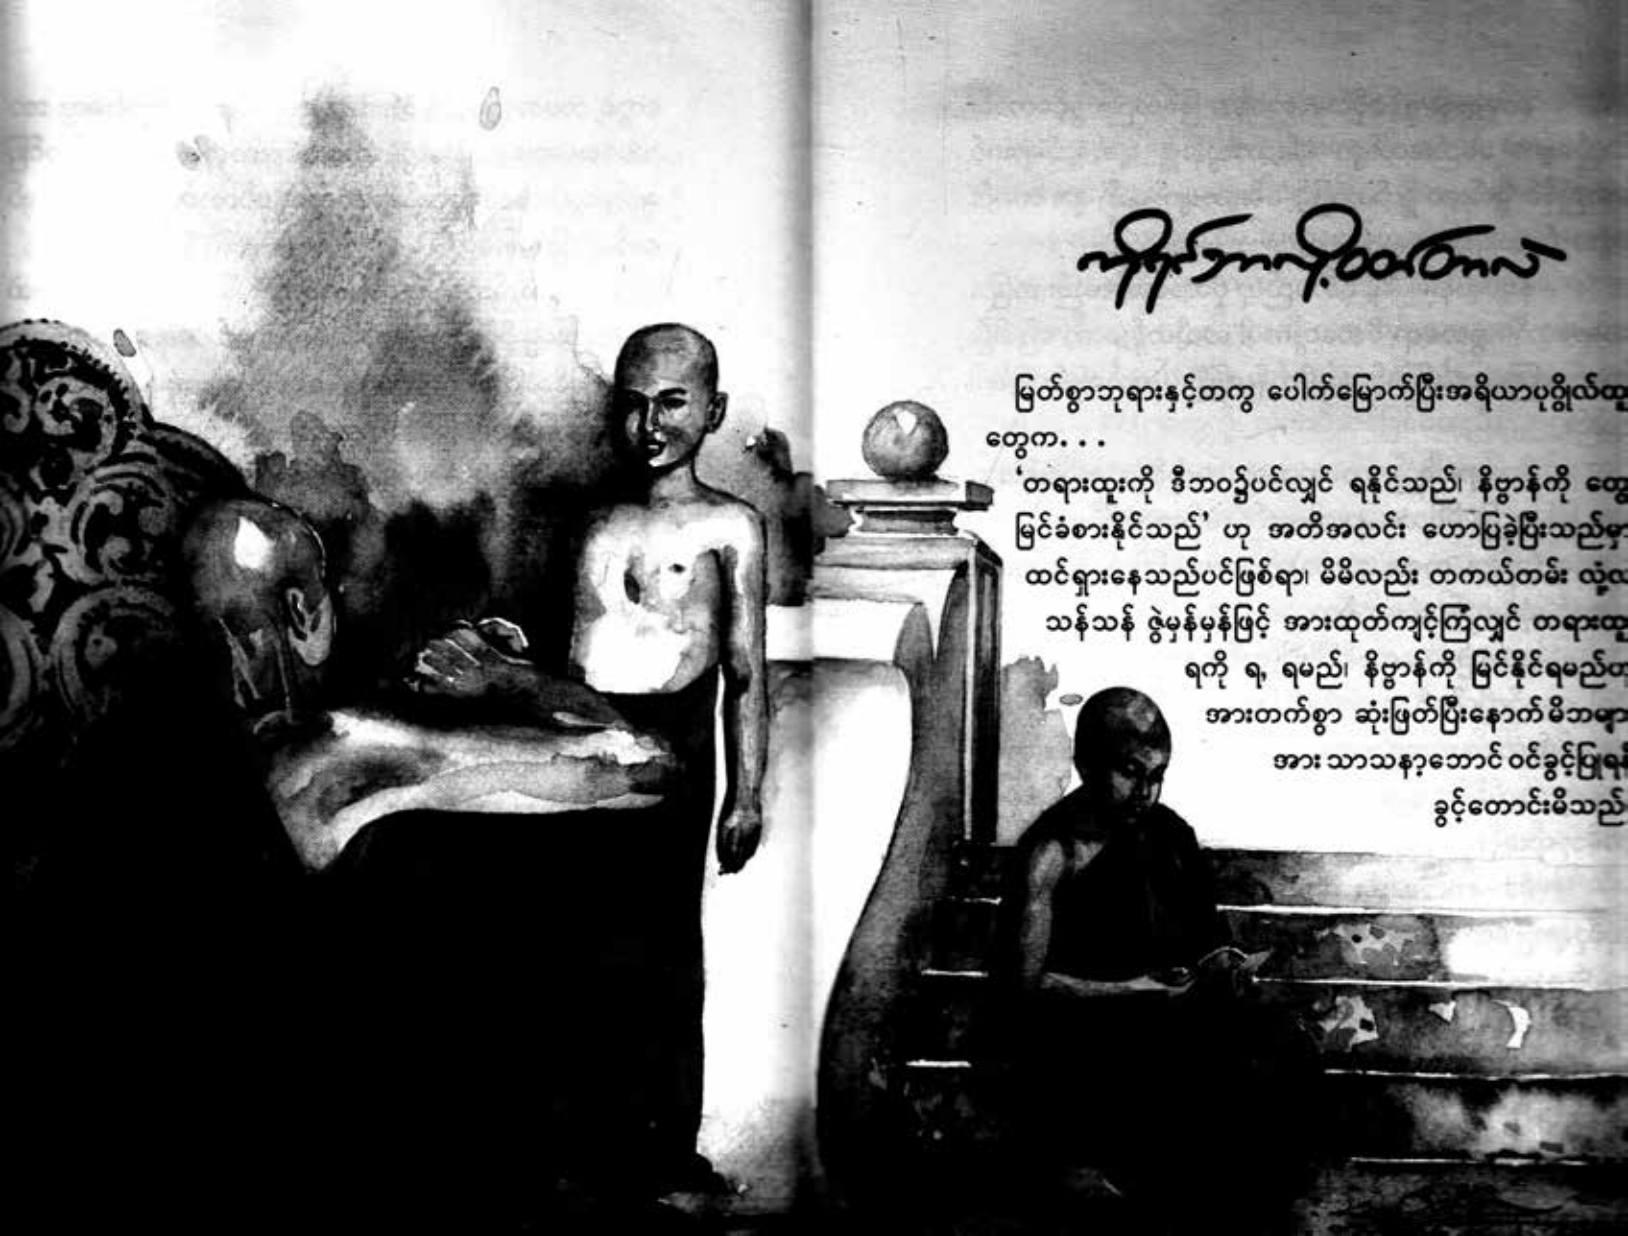 ကိုရင်ဘာလို့ဝတ်တာလဲ
မြတ်စွာဘုရားနှင့်တကွ ပေါက်မြောက်ပြီးအရိယာပုဂ္ဂိုလ်ထူး
တွေက. . .
‘တရားထူးကို ဒီဘဝ၌ပင်လျှင် ရနိုင်သည်၊ နိဗ္ဗာန်ကို တွေ့
မြင်ခံစားနိုင်သည်’ ဟု အတိအလင်း ဟောပြခဲ့ပြီးသည်မှာ
ထင်ရှားနေသည်ပင်ဖြစ်ရာ၊ မိမိလည်း တကယ်တမ်း
သန်သန် ဇွဲမှန်မှန်ဖြင့် အားထုတ်ကျင့်ကြံလျှင် တရားထူး
ရကို ရ, ရမည်၊ နိဗ္ဗာန်ကို မြင်နိုင်ရမည်ဟု
အားတက်စွာ ဆုံးဖြတ်ပြီးနောက် မိဘများ
အား သာသနာ့ဘောင် ဝင်ခွင့်ပြုရန်
ခွင့်တောင်းမိသည်